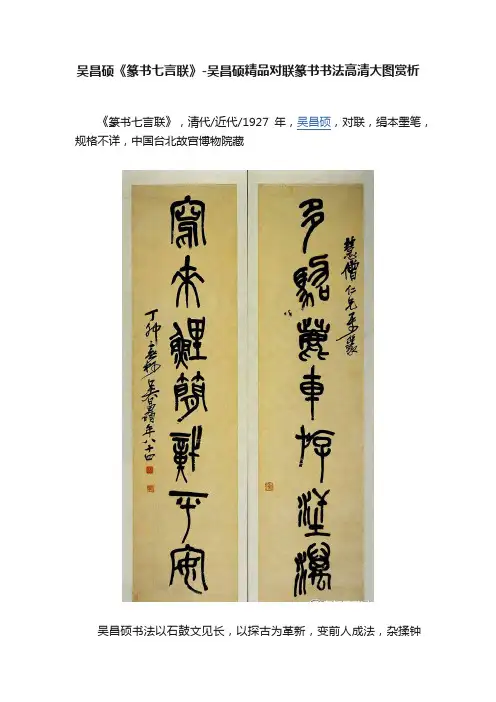 吴昌硕《篆书七言联》-吴昌硕精品对联篆书书法高清大图赏析
《篆书七言联》，清代/近代/1927 年，吴昌硕，对联，绢本墨笔，
规格不详，中国台北故宫博物院藏
慧僧仁兄
多車
寫來鯉簡平安
丁卯吳昌碩年八十四
吴昌硕书法以石鼓文见长，以探古为革新，变前人成法，杂揉钟